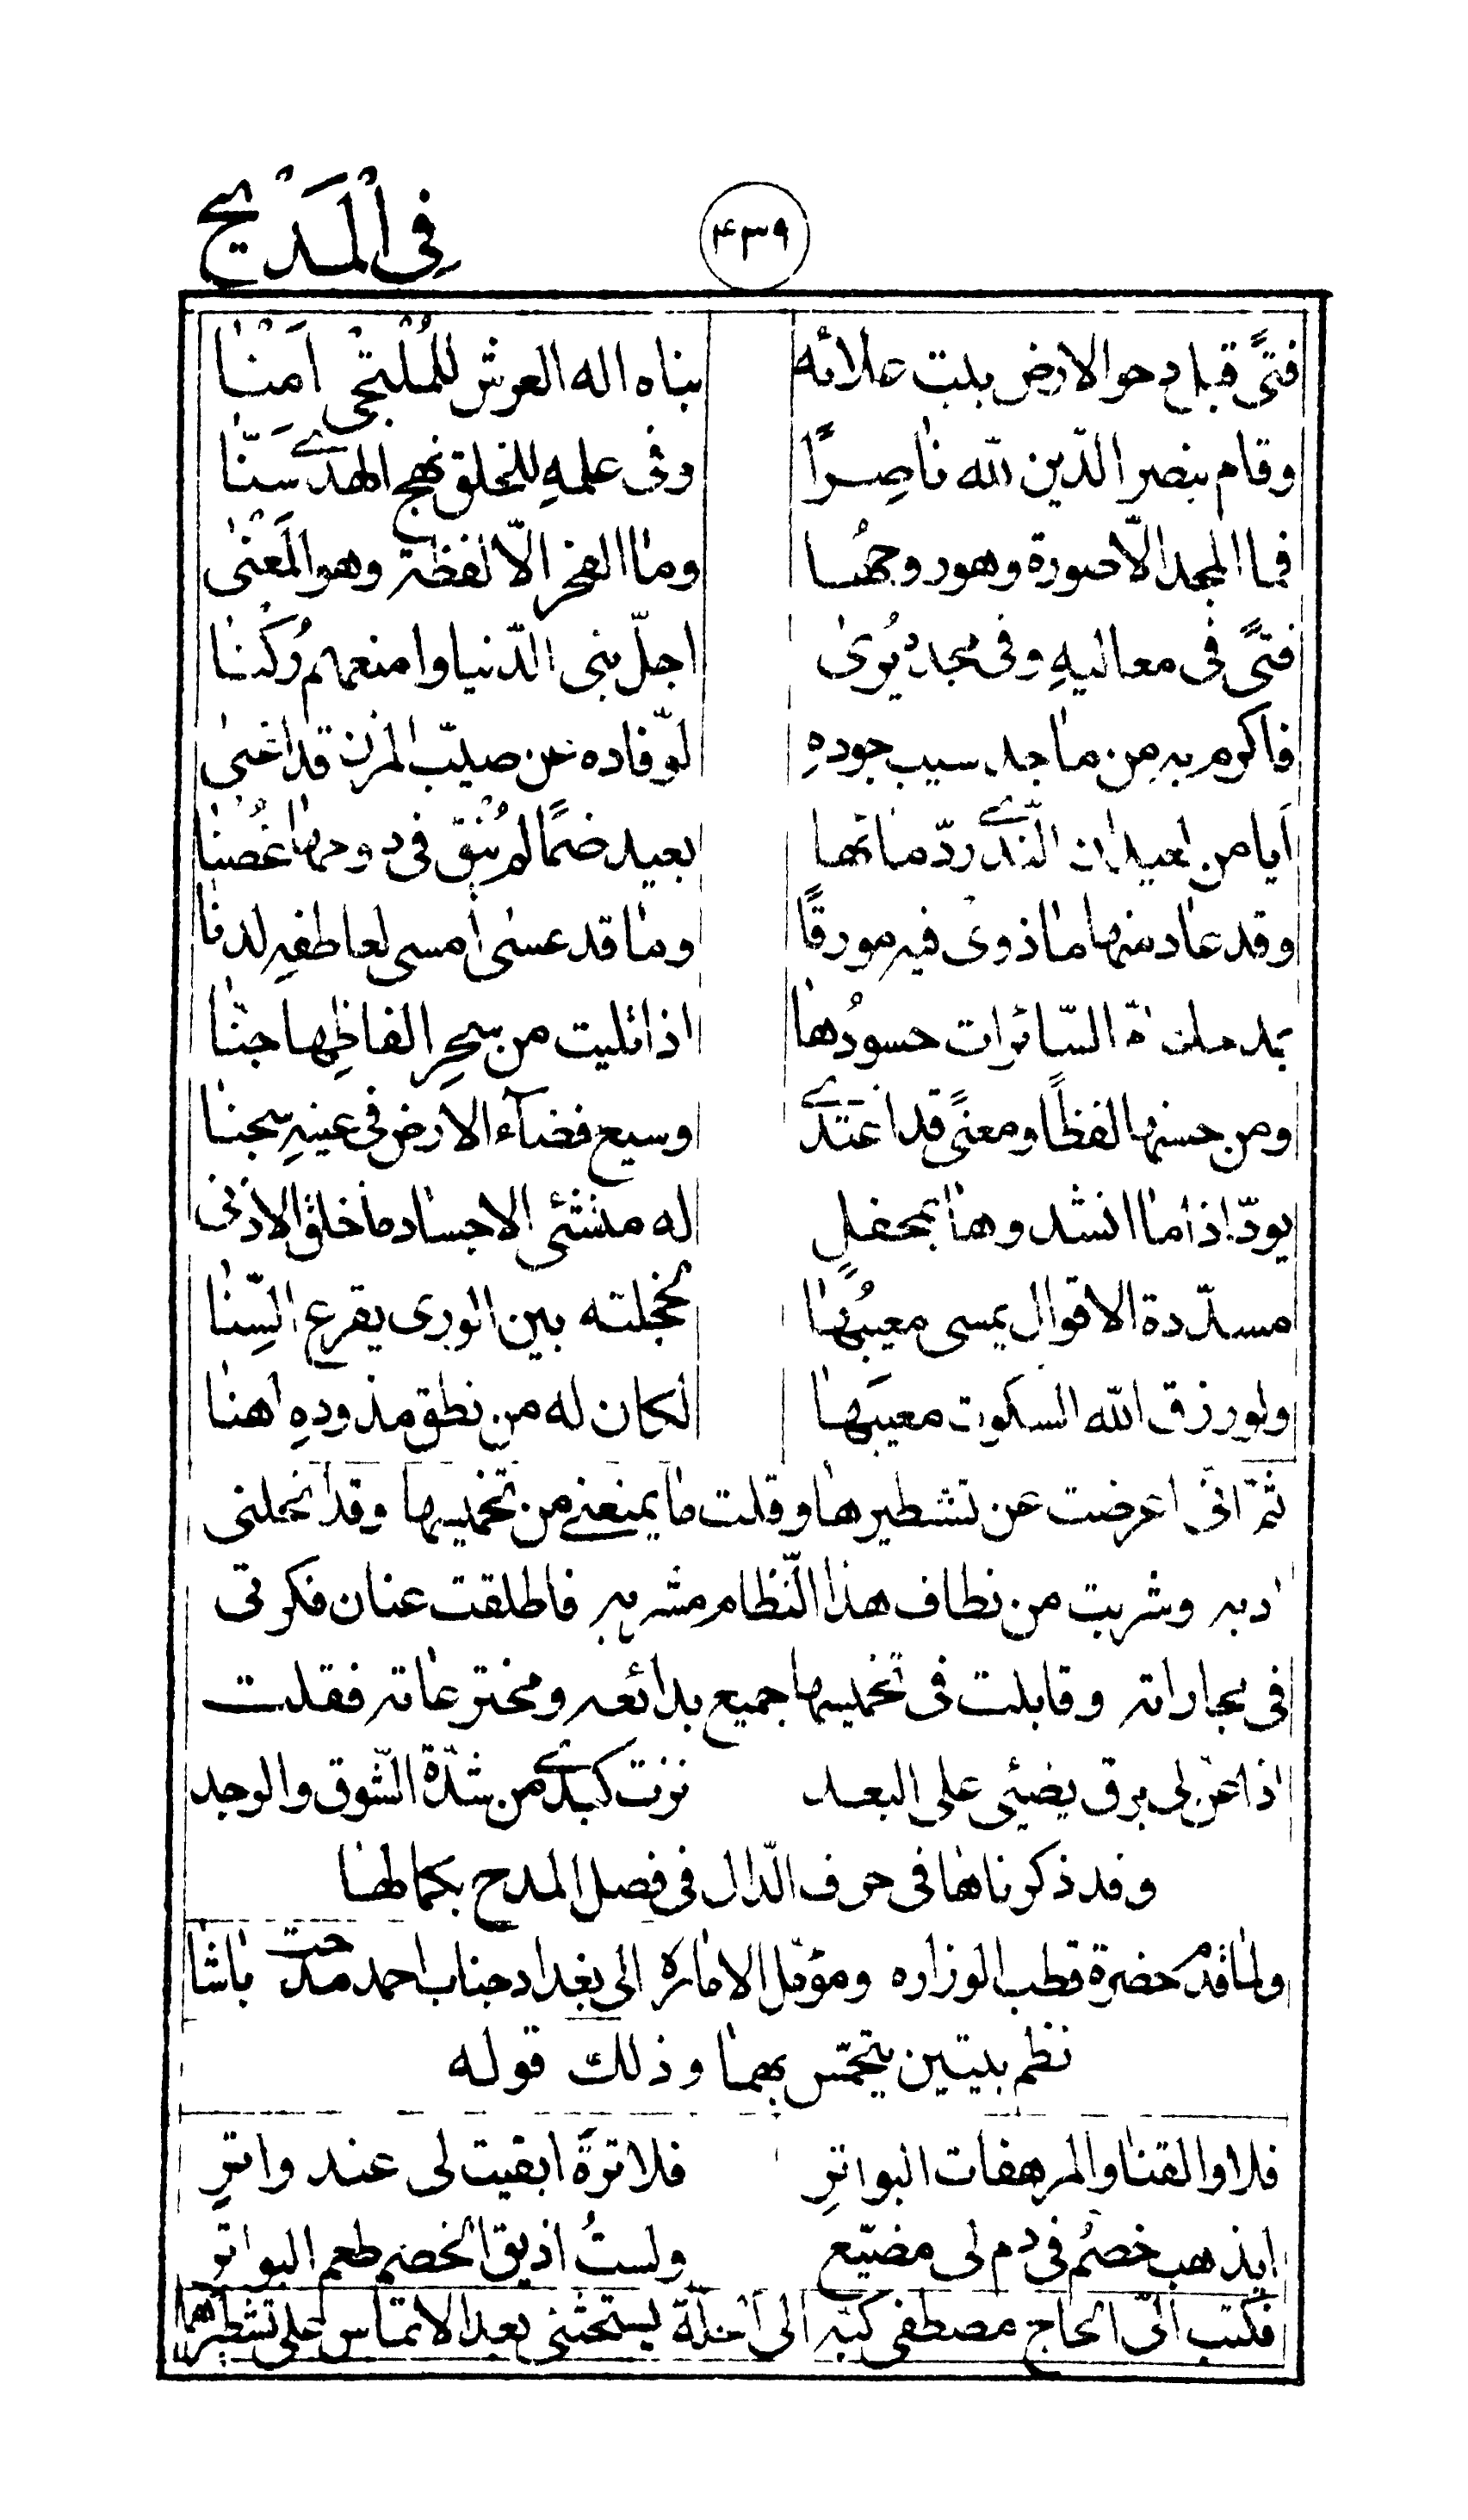 في المَديح
٤٣٩
فتىً قبل دحو الارض بيت علائه بناه اله العرش للمُلتجى اَمْنٰا
وقام بنصر الدّين لله ناصِرًا وفى علمهِ للخلق نهج الهدى سَنّٰا
فما المجد الّا صورة وهو روحهُا ومٰا الفخر الّا لفظة وهو المَعْنٰى
فتىً فى معاليهِ وفى مجده يُرىٰ اجلّ بنى الدّنيا وامنعهم رُكنٰا
فاكرم به من مٰاجد سيب جودهِ لوّفاده عن صيّب المزن قد اغنىٰ
اَيا من لعيدان النّدى ردّ مٰائها بعيد ضمًا لم يُبْقِ فى دوحها غُصْنٰا
وقد عٰاد منها مٰا ذوى فيه مورقًا ومٰا قد عسىٰ امسى لعاطفهِ لدنٰا
السّائرات حسودُهٰا اذا تليت من سحرِ الفاظِها جنّٰا
ومن حسنها لفظًا ومعنىً قد اغتدى وسيع فضآء الارض فى عينهِ سجنٰا
يودّ اذا مٰا انشدوهٰا بمحفلٍ له منشئى الاجساد مٰا خلق الاذنى
مسدّدة الاقوال يمسى معيبُهٰا لخجلته بين الورى يقرع السِّنّٰا
ولو رزق الله السكوت معيبَهٰا لكان له من نطق مذودهِ اهنٰا
ثمّ انّى اعرضت عن تشطيرها وقلت مٰا يمنعنى من تخميسها وقد انحلنى
ادبه وشربت من نطاف هذا النّظام مشربه فاطلقت عنان فكرتى
فى مجاراته وقابلت فى تخميسها جميع بدائعه ومخترعٰاته فقلت
اذا عنّ لى برق يضيئى على البعد نزت كبدى من شدّة الشّوق والوجد
وقد ذكرناهٰا فى حرف الدّال فى فصل المدح بكمالهٰا
ولمّا قدم حضرة قطب الوزاره وموئل الامٰاره الى بغداد جناب احمد مدحت پاشٰا
نظم بيتين يتحمّس بهمٰا وذلك قوله
فلا والقنٰا والمرهفات البواترِ فلا ترةً ابقيت لى عند واترِ
ايذهب خصمُ فى دم لى مضيّع ولستُ اذيق الخصم طعم البواترِ
فكتب الىّ الحاج مصطفى كبّه الى الحلّة يستحثنى بعد الالتماس على تشطيرهما